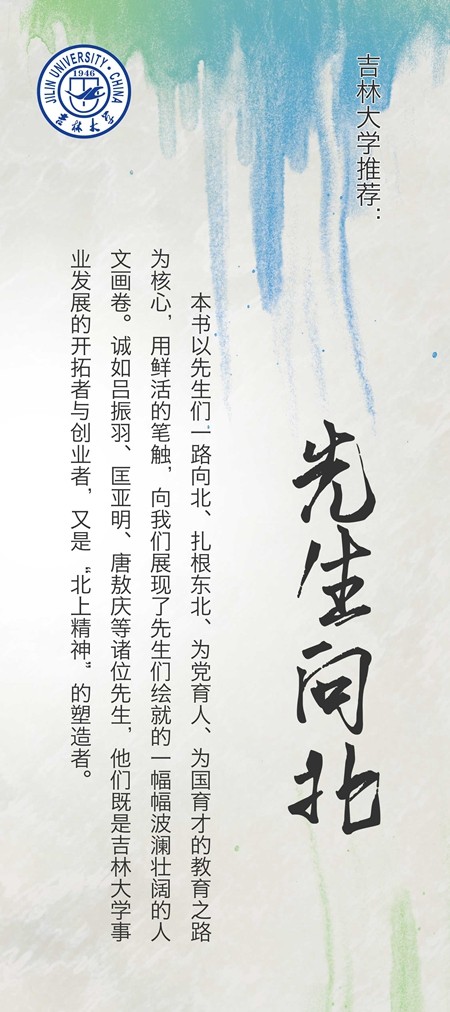 JILIN UNIVERSITY · CHINA
1946
吉林大学
吉林大学推荐：
先生向北
本书以先生们一路向北、扎根东北、为党育人、为国育才的教育之路
为核心，用鲜活的笔触，向我们展现了先生们绘就的一幅幅波澜壮阔的人
文画卷。诚如吕振羽、匡亚明、唐敖庆等诸位先生，他们既是吉林大学事
业发展的开拓者与创业者，又是“北上精神”的塑造者。